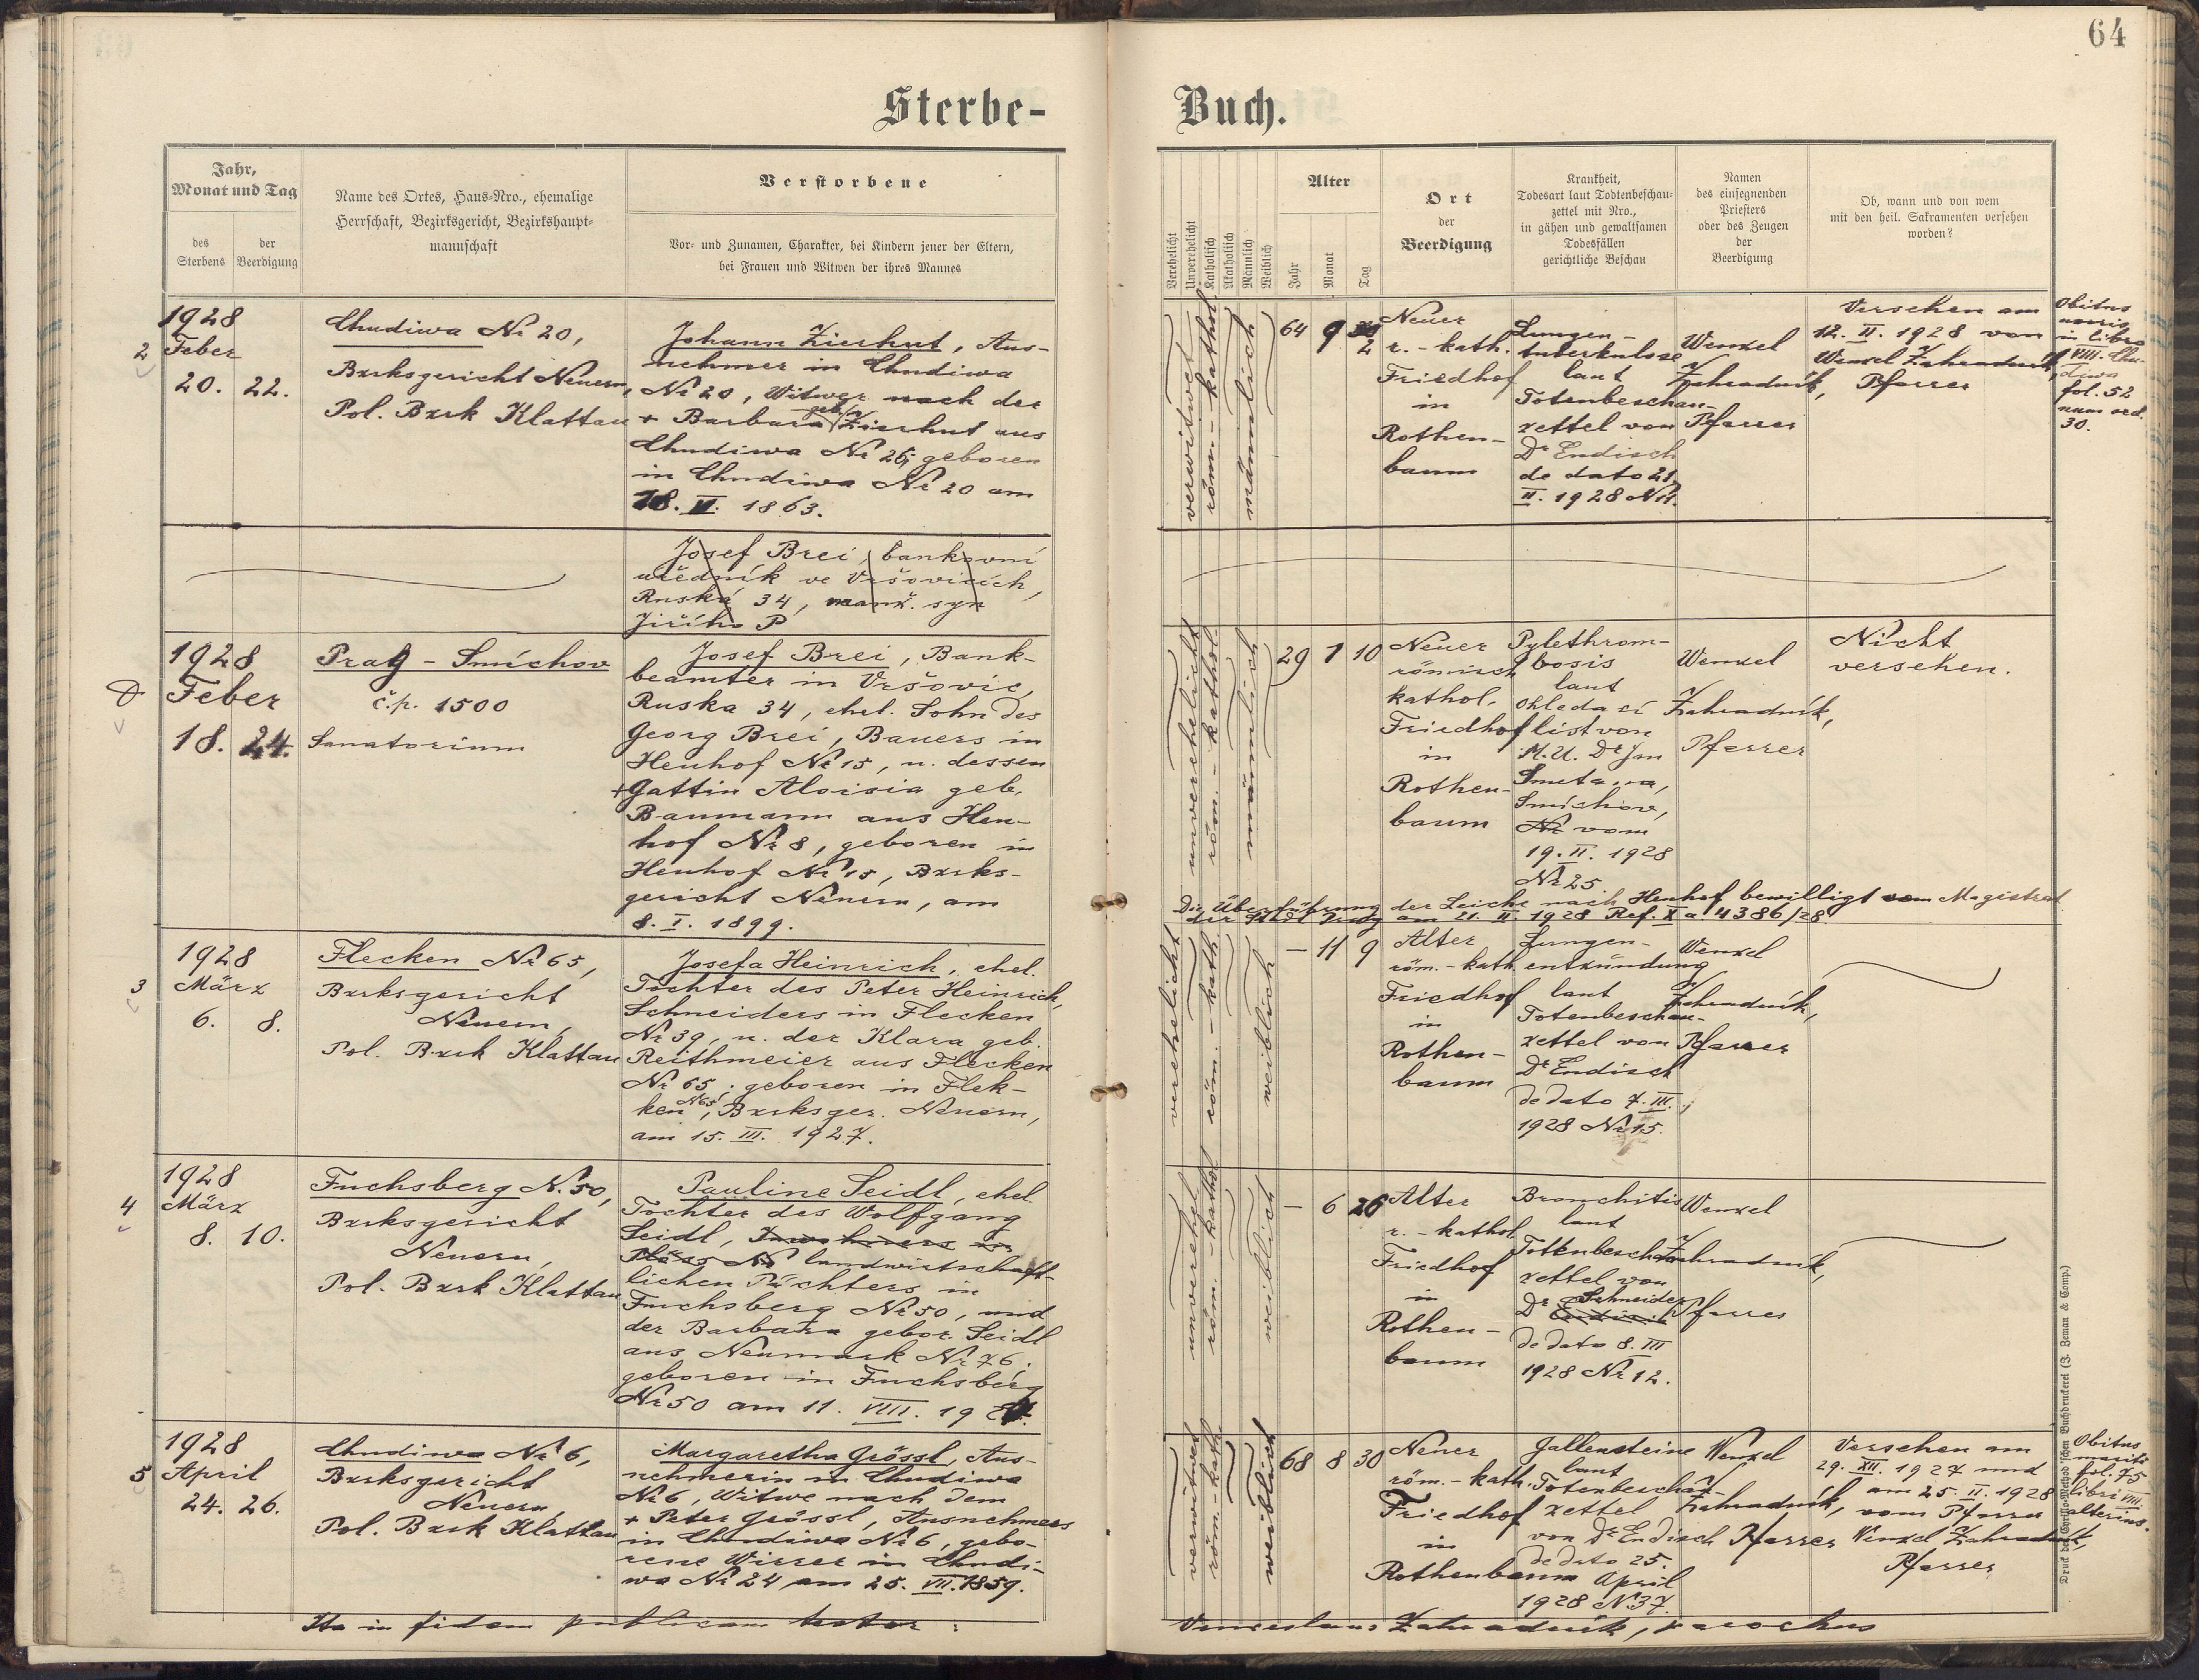 64
Sterbe-
Buch.
Jahr,
Monat und Tag
des
Sterbens
der
Beerdigung
Name des Ortes, Haus-Nro., ehemalige
Herrschaft, Bezirksgericht, Bezirkshaupt-
mannschaft
Verstorbene
Vor- und Zunamen, Charakter, bei Kindern jener der Eltern,
bei Frauen und Witwen der ihres Mannes
Verehelicht
Unverehelicht
Katholisch
Akatholisch
Männlich
Weiblich
Alter
Jahr
Monat
Tag
Ort
der
Beerdigung
Krankheit,
Todesart laut Todtenbeschau-
zettel mit Nro.,
in gähen und gewaltsamen
Todesfällen
gerichtliche Beschau
Namen
des einsegnenden
Priesters
oder des Zeugen
der
Beerdigung
Ob, wann und von wem
mit den heil. Sakramenten versehen
worden?
1928
2 Feber
20. 22.
Chudiwa Nr 20,
Bzrksgericht Neuern,
Pol. Bzrk Klattau
Johann Zierhut, Aus-
nehmer in Chudiwa
Nr 20, Witwer nach der
+ Barbara geb. Zierhut aus
Chudiwa Nr 26; geboren
in Chudiwa Nr 20 am
18. V. 1863.
verwitwet
röm.-kathol.
männlich
64 9 2
Neuer
r.-kath.
Friedhof
in
Rothen-
baum
Lungen-
tuberkulose
laut
Totenbeschau-
zettel von
Dr Endisch
de dato 21.
II. 1928 Nr
Wenzel
Zahradník,
Pfarrer
Versehen am
12. II. 1928 von
Wenzel Zahradník,
Pfarrer
Obitus
uxoris
in libro
VIII. Chu-
diwa
fol. 52
num ord.
30.
Josef Brei, bankovní
uředník ve Vršovicích,
Ruská 34, manž. syn
Jiřího P
1928
Feber
18. 24.
Prag - Smíchov
č.p. 1500
Sanatorium
Josef Brei, Bank-
beamter in Vršovic,
Ruska 34, ehel. Sohn des
Georg Brei, Bauers in
Heuhof Nr 15, u. dessen
+ Gattin Aloisia geb.
Baumann aus Heu-
hof Nr 8, geboren in
Heuhof Nr 15, Bzrks-
gericht Neuern, am
8. I. 1899.
unverehelicht
röm.-kathol.
männlich
29 1 10
Neuer
römisch
kathol.
Friedhof
in
Rothen-
baum
Pylethrom-
bosis
laut
ohledací
list von
M.U. Dr Jan
Smetana,
Smíchov,
Nr vom
19. II. 1928
Nr 25.
Wenzel
Zahradník,
Pfarrer
Nicht
versehen.
Die Überführung der Leiche nach Heuhof bewilligt vom Magistrat
der Stadt Prag am 21. II. 1928 Ref. X a 4386/28.
1928
3 März
6. 8.
Flecken Nr 65,
Bzrksgericht
Neuern,
Pol. Bzrk Klattau
Josefa Heinrich, ehel.
Tochter des Peter Heinrich,
Schneiders in Flecken
Nr 39, u. der Klara geb.
Reithmeier aus Flecken
Nr 65; geboren in Flek-
ken N 65, Bzrksger. Neuern,
am 15. III. 1927.
verehelicht
röm.-kath.
weiblich
— 11 9
Alter
röm.-kath.
Friedhof
in
Rothen-
baum
Lungen-
entzündung
laut
Totenbeschau-
zettel von
Dr Endisch
de dato 7. III.
1928 Nr 15.
Wenzel
Zahradník,
Pfarrer
1928
4 März
8. 10.
Fuchsberg N. 50,
Bzrksgericht
Neuern,
Pol. Bzrk Klattau
Pauline Seidl, ehel.
Tochter des Wolfgang
Seidl, Inwohners in
Plöss Nr landwirtschaft-
lichen Pächters in
Fuchsberg Nr 50, und
der Barbara gebor. Seidl
aus Neumark Nr 76.
geboren in Fuchsberg
Nr 50 am 11. VIII. 19
unverehel.
röm.-kathol
weiblich
— 6 26
Alter
r.-kathol.
Friedhof
in
Rothen-
baum
Bronchitis
laut
Totenbeschau-
zettel von
Dr Schneider
Endisch
de dato 8. III
1928 Nr 12.
Wenzel
Zahradník,
Pfarrer
1928
5 April
24. 26.
Chudiwa Nr 6,
Bzrksgericht
Neuern,
Pol. Bzrk Klattau
Margaretha Grössl, Aus-
nehmerin in Chudiwa
Nr 6, Witwe nach dem
+ Peter Grössl, Ausnehmers
in Chudiwa Nr 6, gebo-
rene Wirrer in Chudi-
wa Nr 24 am 25. VII. 1859.
verwitwet
röm.-kath
weiblich
68 8 30
Neuer
röm.-kath.
Friedhof
in
Rothenbaum
Gallensteine
laut
Totenbeschau-
zettel
von Dr Endisch
de dato 25.
April
1928 N 37.
Wenzel
Zahradník,
Pfarrer
Versehen am
29. XII. 1927 und
am 25. II. 1928
vom Pfarrer
Wenzel Zahradník,
Pfarrer
Obitus
mariti
fol. 75
libri VIII.
alterius.
Ita in fidem publicam testor:
Venceslaus Zahradník, parochus
Druck der Cyrillo-Method'schen Buchdruckerei (J. Zeman & Comp.)